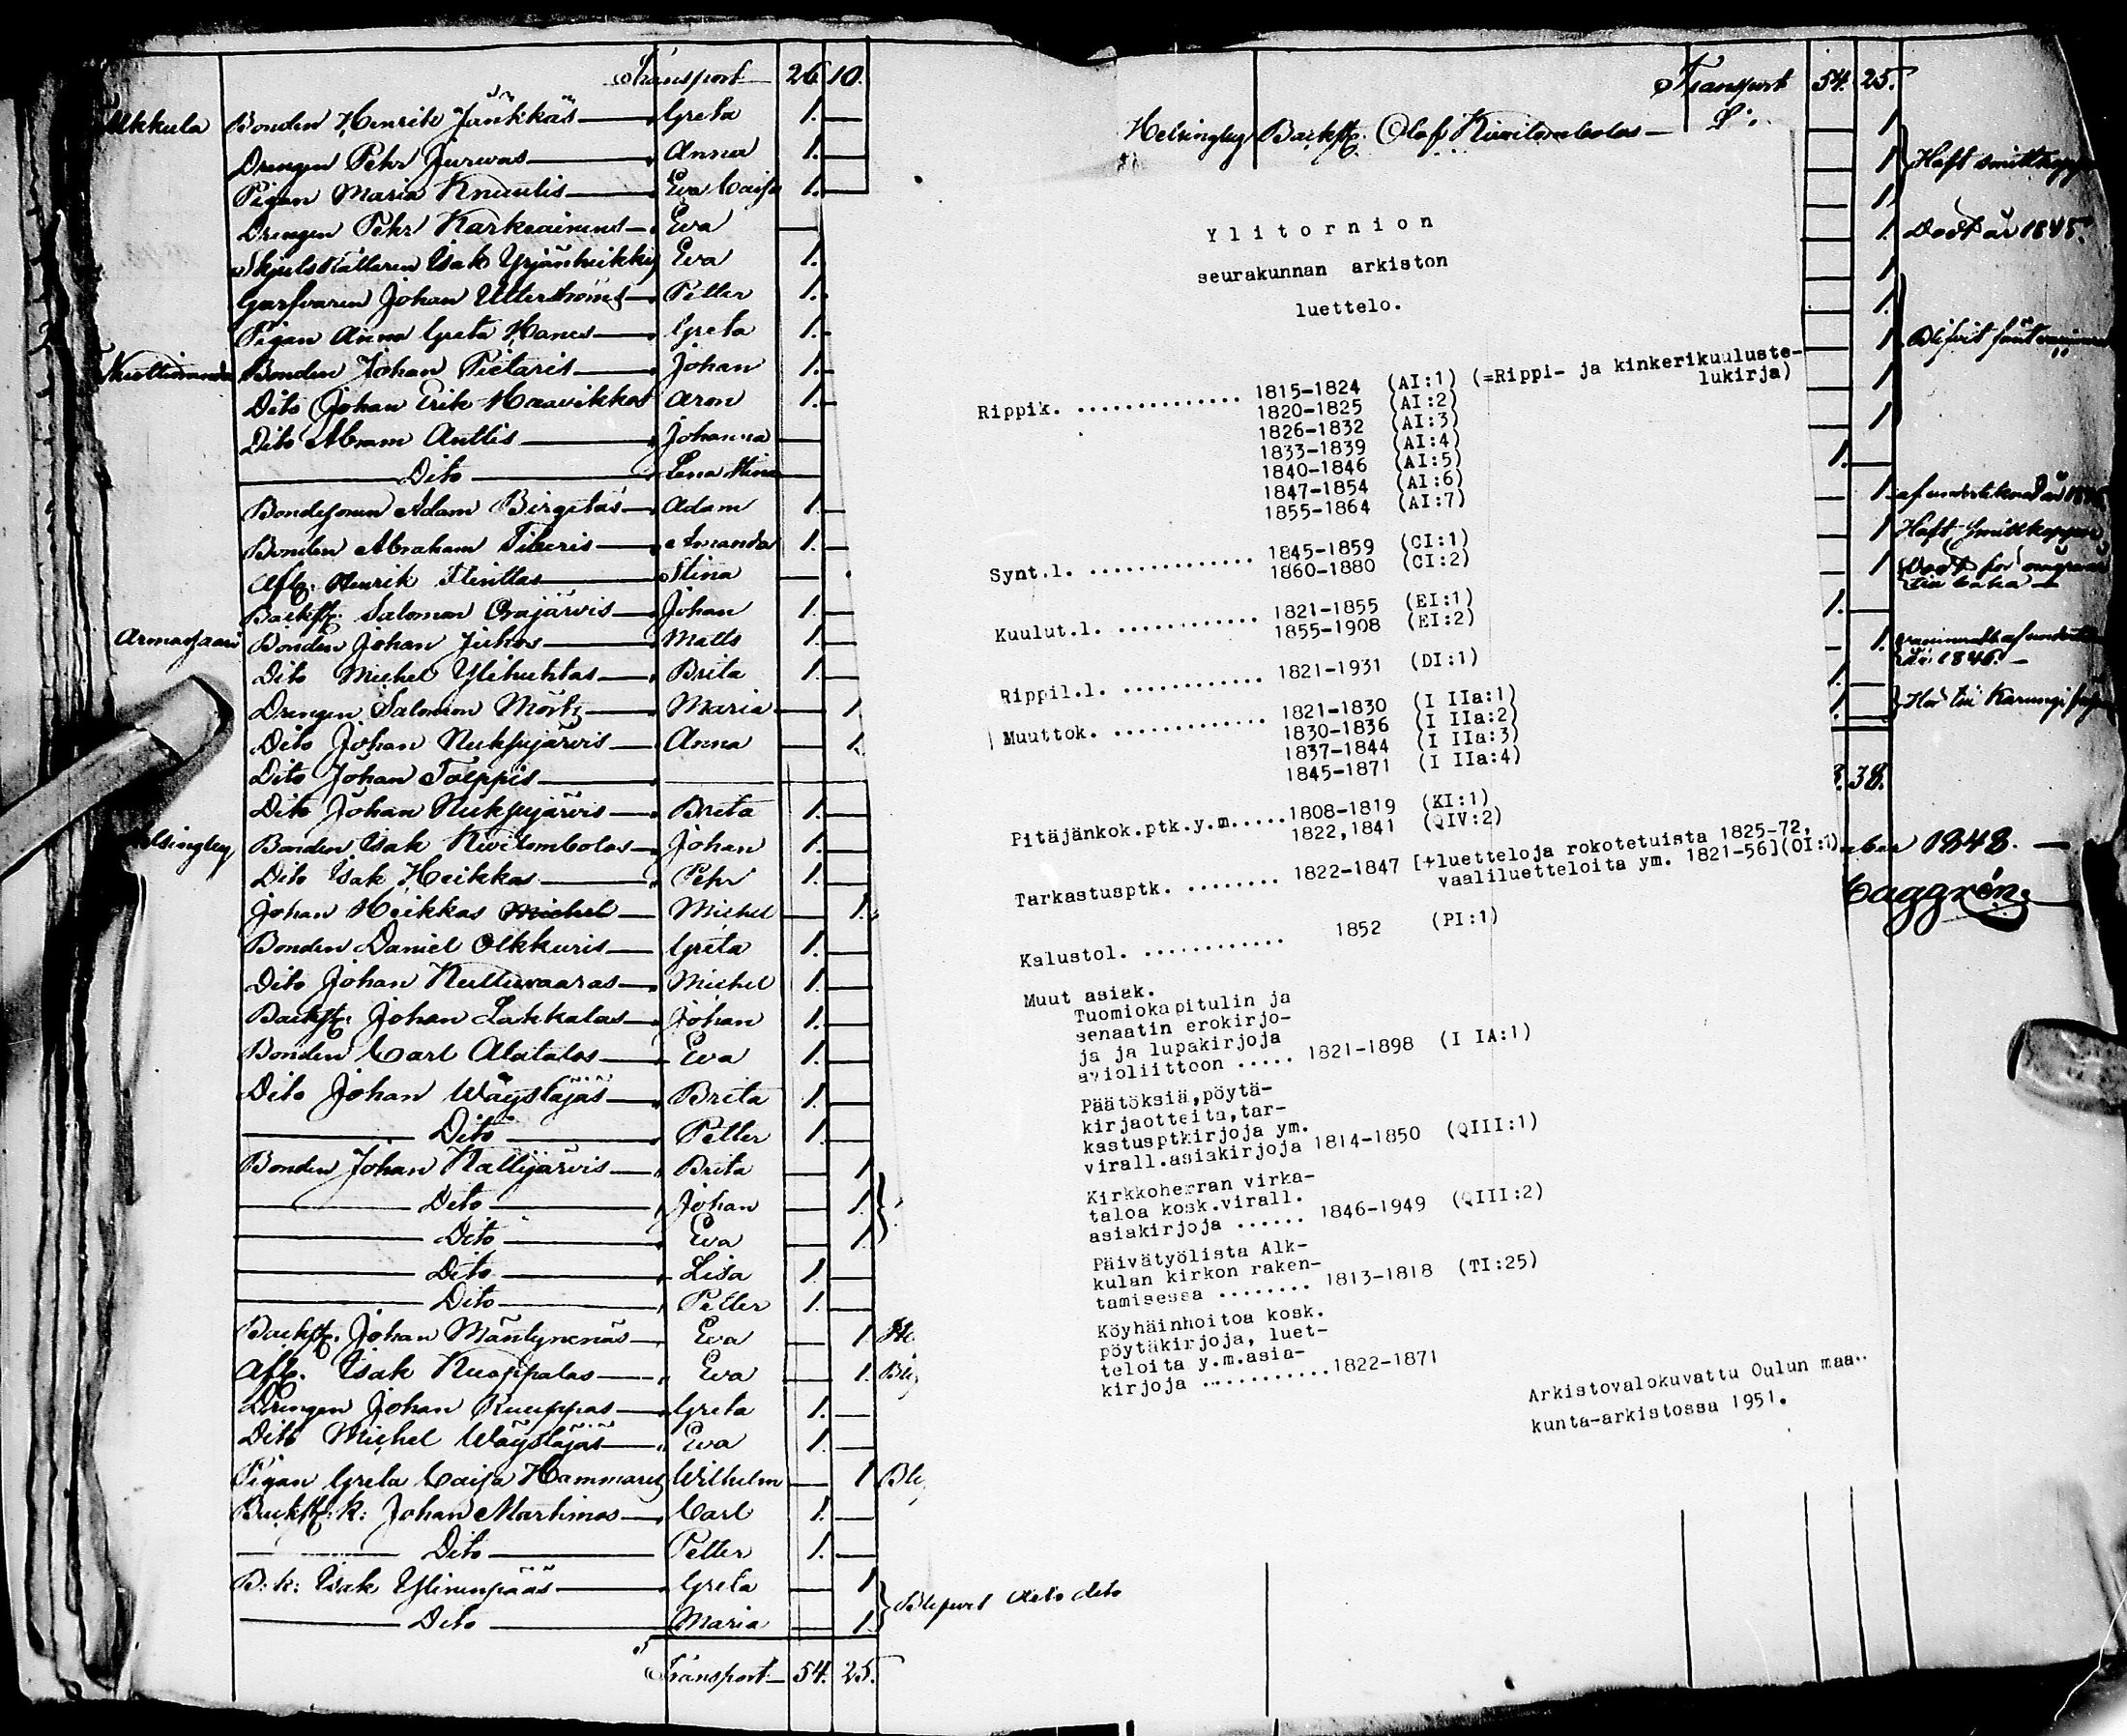 Transport 26 10.
Alkkula Bonden Henrik Jänkkäs Greta 1.
Drengen Pehr Jurwas Anna 1.
Pigan Maria Knuutis Eva Caisa 1.
Drengen Pehr Karkeainens Eva
Skjutsrättaren Isak Yrjänheikky Eva 1.
Garfvaren Johan Utterströms Petter 1.
Pigan Anna Greta Hanes Greta 1.
Bonden Johan Pietaris Johan 1.
Dito Johan Erik Haavikkos Aron 1.
Dito Abram Anttis Johanna
Dito Lena Stina
Bondesonen Adam Birgitas Adam 1.
Bonden Abraham Tiberis Amanda 1.
Afl. Henrik Flinttas Stina
Backst. Salomon Orajärvis Johan 1.
Armasjaari Bonden Johan Juhos Matts 1.
Dito Michel Ylihuhtas Brita 1.
Drengen Salomon Mörtz Maria 1
Dito Johan Nuhpujärvis Anna 1.
Dito Johan Toeppis
Dito Johan Nuhpujärvis Brita 1.
Helsingby Bonden Isak Kivilombolos Johan 1.
Dito Isak Heikkas Pehr 1.
Johan Heikkas Michel 1.
Bonden Daniel Olkkuris Greta 1.
Dito Johan Kultuvaaras Michel 1.
Backst. Johan Lakkalas Johan 1.
Bonden Carl Alatalos Eva 1.
Dito Johan Wäystäjäs Brita 1.
Dito Petter 1.
Bonden Johan Kallijärvis Brita 1
Dito Johan 1.
Dito Eva 1.
Dito Lisa 1.
Dito Petter 1.
Backst. Johan Mäntynenäs Eva 1
Afl. Isak Kuoppalas Eva 1.
Drengen Johan Ruuppas Greta 1.
Dito Michel Wäystäjäs Eva 1.
Pigan Greta Caisa Hammares Wilhelm 1
Backst:k: Johan Martimos Carl 1.
Dito Petter 1.
B:k: Isak Ylinenpääs Greta 1
Dito Maria 1.
dito dito
Transport 54. 25.
Transport 54. 25.
Helsingby Backst. Olof Kivilombolos 1
Haft smittkoppor
Död år 1845.
Ylitornion
seurakunnan arkiston
luettelo.
Rippik. .............. 1815-1824 (AI:1) (=Rippi- ja kinkerikuuluste-
lukirja)
1820-1825 (AI:2)
1826-1832 (AI:3)
1833-1839 (AI:4)
1840-1846 (AI:5)
1847-1854 (AI:6)
1855-1864 (AI:7)
Synt.l. .............. 1845-1859 (CI:1)
1860-1880 (CI:2)
Kuulut.l. ............ 1821-1855 (EI:1)
1855-1908 (EI:2)
Rippil.l. ............ 1821-1931 (DI:1)
Muuttok. ............. 1821-1830 (I IIa:1)
1830-1836 (I IIa:2)
1837-1844 (I IIa:3)
1845-1871 (I IIa:4)
Pitäjänkok.ptk.y.m.....1808-1819 (KI:1)
1822,1841 (QIV:2)
Tarkastusptk. ........ 1822-1847 [+luetteloja rokotetuista 1825-72,
vaaliluetteloita ym. 1821-56](OI:1)
Kalustol. ............ 1852 (PI:1)
Muut asiak.
Tuomiokapitulin ja
senaatin erokirjo-
ja ja lupakirjoja
avioliittoon ..... 1821-1898 (I IA:1)
Päätöksiä,pöytä-
kirjaotteita,tar-
kastusptkirjoja ym.
virall.asiakirjoja 1814-1850 (QIII:1)
Kirkkoherran virka-
taloa kosk.virall.
asiakirjoja ...... 1846-1949 (QIII:2)
Päivätyölista Alk-
kulan kirkon raken-
tamisessa ........ 1813-1818 (TI:25)
Köyhäinhoitoa kosk.
pöytäkirjoja, luet-
teloita y.m.asia-
kirjoja ...........1822-1871
Arkistovalokuvattu Oulun maa-
kunta-arkistossa 1951.
Haft smittkoppor
38.
1848.